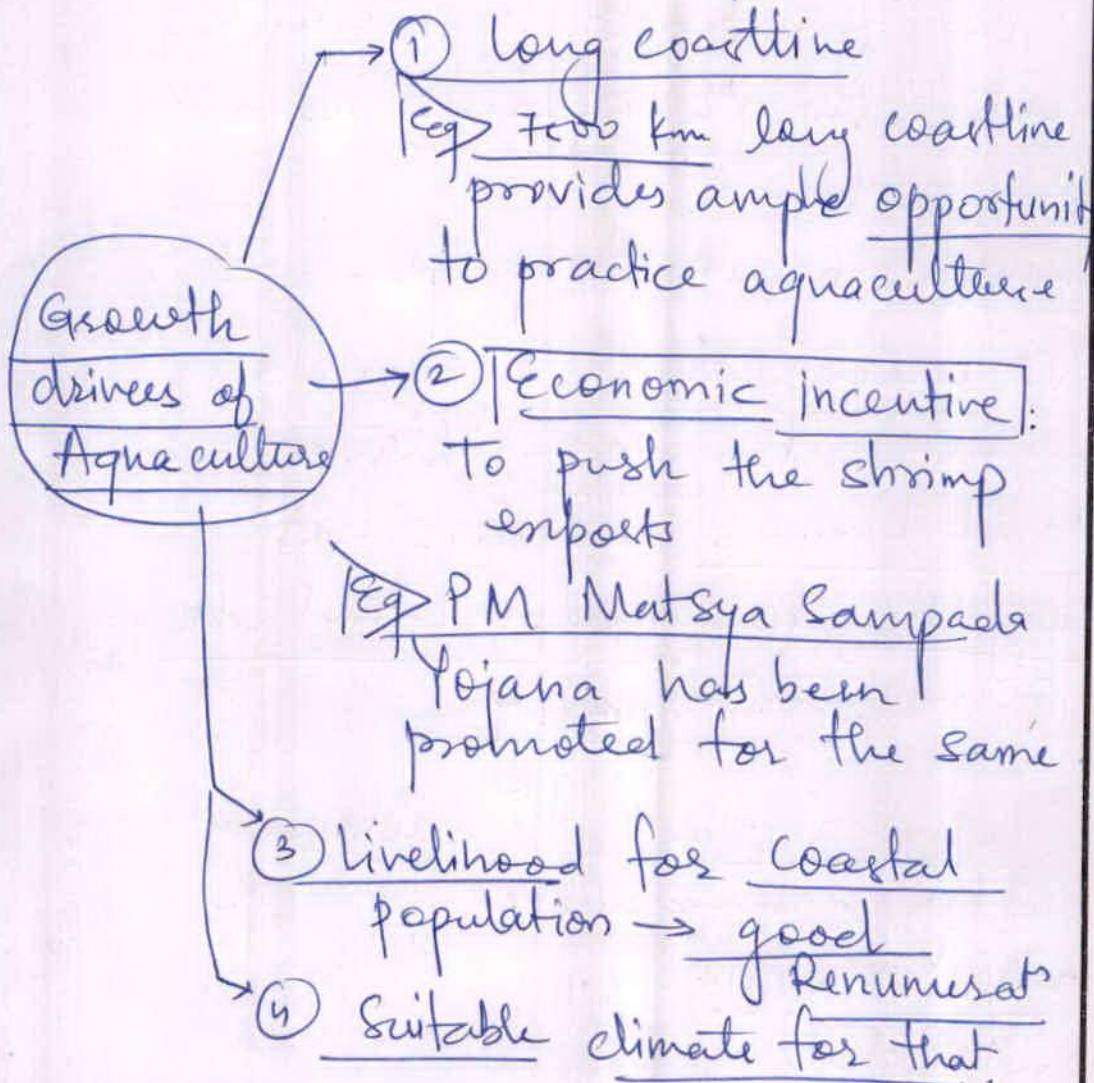 Growth
drivers of
Aquaculture
① long coastline
Eg 7000 km long coastline
provides ample opportunit
to practice aquaculture
② Economic incentive:
To push the shrimp
exports
Eg PM Matsya Sampada
Yojana has been
promoted for the same
③ livelihood for coastal
population → good
Renumerat
④ Suitable climate for that